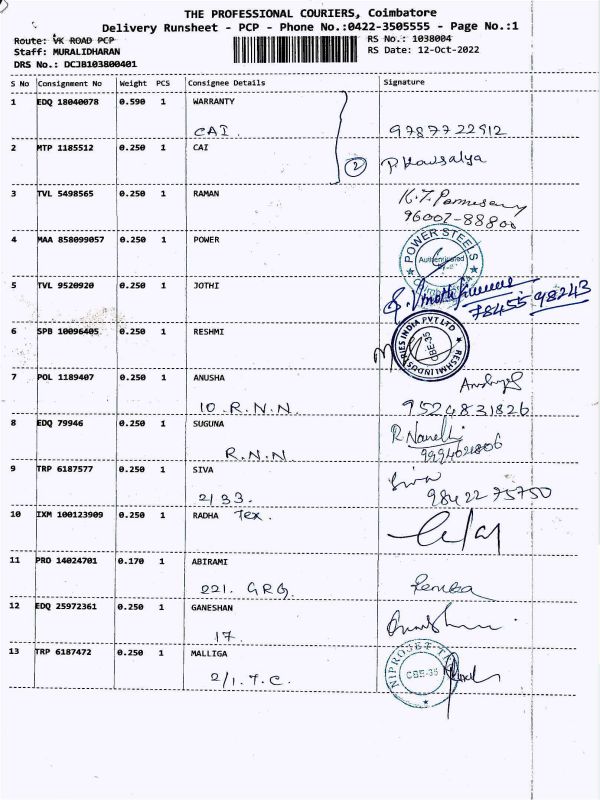 THE PROFESSIONAL COURIERS, Coimbatore
Delivery Runsheet - PCP - Phone No.:0422-3505555 - Page No.:1
Route: VK ROAD PCP
RS No.: 1038004
Staff: MURALIDHARAN
RS Date: 12-Oct-2022
DRS No.: DCJB103800401
S No Consignment No Weight PCS Consignee Details Signature
1 EDQ 18040078 0.590 1 WARRANTY
CAI. 9787722912
2 MTP 1185512 0.250 1 CAI
2 P. Kowsalya
3 TVL 5498565 0.250 1 RAMAN
96007-88800
4 MAA 858099057 0.250 1 POWER
POWER STEELS
Authenticated
5 TVL 9520920 0.250 1 JOTHI
78455 98243
6 SPB 10096405 0.250 1 RESHMI
RESHMI INDUSTRIES INDIA PVT LTD
CBE-35
7 POL 1189407 0.250 1 ANUSHA
10. R.N.N. 9524831826
8 EDQ 79946 0.250 1 SUGUNA
R.N.N 9994021806
9 TRP 6187577 0.250 1 SIVA
Siva
2/33. 98422 75750
10 IXM 100123909 0.250 1 RADHA Tex.
11 PRO 14024701 0.170 1 ABIRAMI
221. GRG.
12 EDQ 25972361 0.250 1 GANESHAN
17.
13 TRP 6187472 0.250 1 MALLIGA
2/1. T.C.
CBE-35